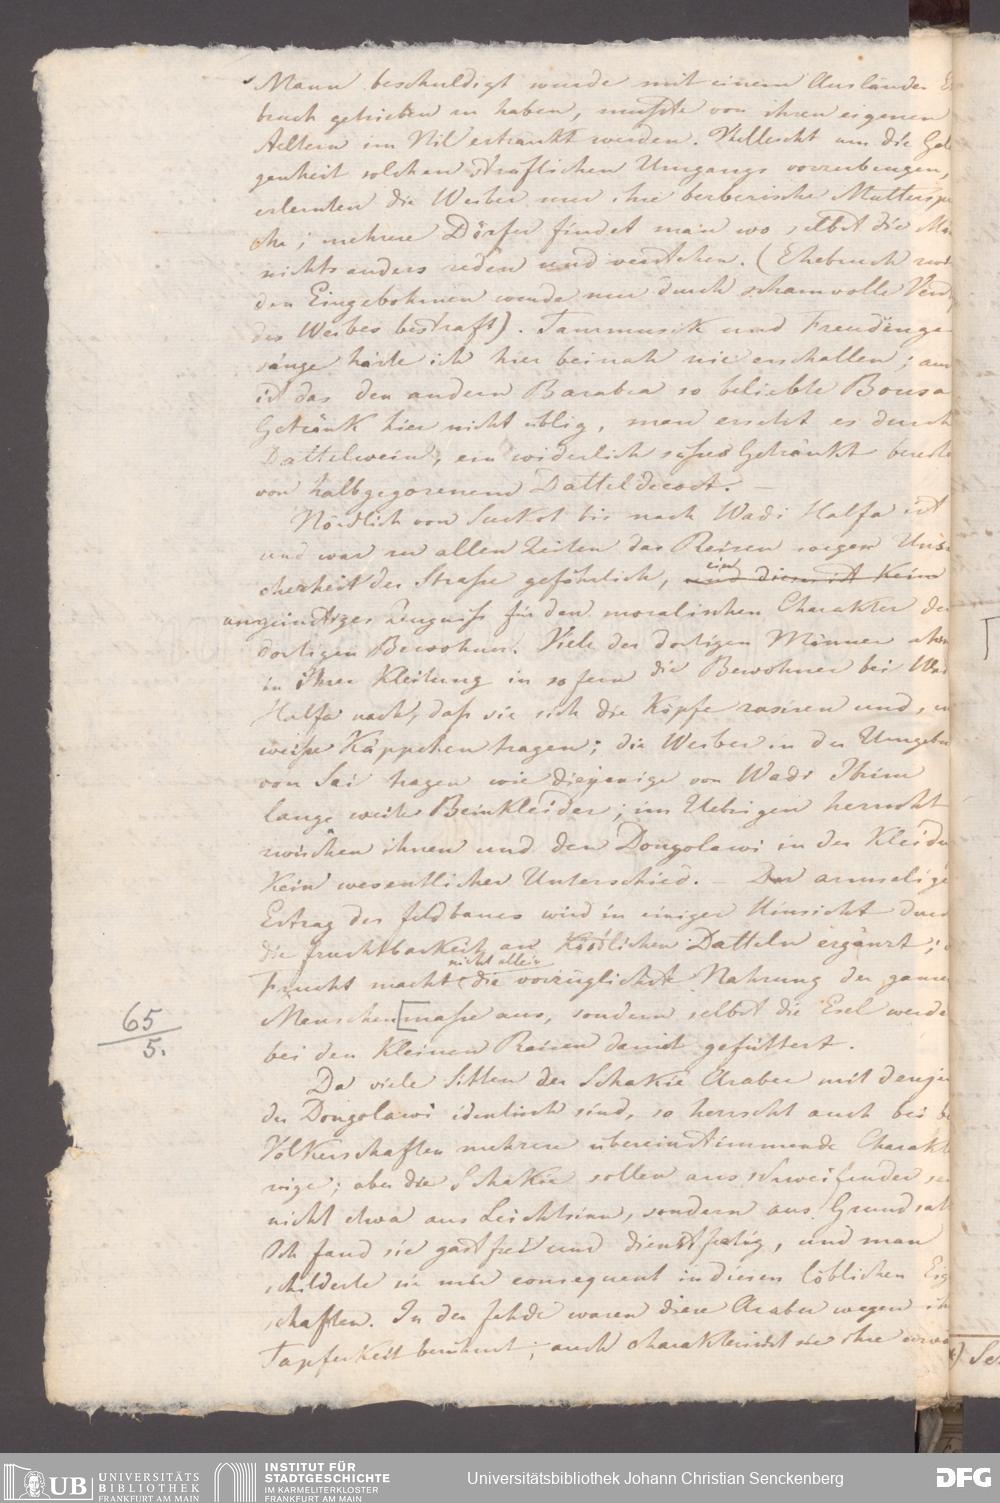 Mann beschuldigt wurde mit einem Ausländer E
bruch getrieben zu haben, mußte von ihren eigenen
Aeltern im Nil ertränkt werden. Vielleicht um die Gele
genheit solchen sträflichen Umgangs vorzubeugen,
erlernten die Weiber nur ihre berberische Mutterspra
che; mehrere Dörfer findet man wo selbst die Mä
nichts anders reden und verstehen. (Ehebruch zwi
den Eingebohrnen wurde nur durch schamvolle
des Weibes bestraft). Tanzmusik und Freudenge-
sänge hörte ich hier beinah nie erschallen; auch
ist das den andern Barabra so beliebte Bousa
Getränk hier nicht üblig, man ersezt es durch
Dattelwein, ein widerlich süßes Getränkt bereitet
von halbgegorenem Datteldecoct. —
Nördlich von Suckot bis nach Wadi Halfa ist
und war zu allen Zeiten das Reisen wegen Unsi
cherheit der Straße gefährlich, und dieses ist kein
ein
ungünstiges Zeugniß für den moralischen Charakter der
dortigen Bewohner. Viele der dortigen Männer ahmen
in Ihrer Kleitung in so fern die Bewohner bei Wadi
Halfa nach, daß sie sich die Köpfe rasiren und,
weiße Käppchen tragen; die Weiber in der Umgebung
von Sai tragen wie diejenige von Wadi Ibrim
lange weite Beinkleider; im Uebrigen herrscht
zwischen ihnen und den Dongolawi in der Kleidung
kein wesentlicher Unterschied. – Der armselige
Ertrag des Feldbaues wird in einiger Hinsicht durch
die Fruchtbarkeit an köstlichen Datteln ergänzt;
nicht allein
Frucht macht die vorzüglichste Nahrung der ganzen
Menschen[masse aus, sondern selbst die Esel werden
65
5.
bei den kleinen Reisen damit gefüttert.
Da viele Sitten der Schakie Araber mit denjen
der Dongolawi identisch sind, so herrscht auch bei
Völkerschaften mehrere übereinstimmende Charakter
züge; aber die Schakie sollen ausschweifender sein
nicht etwa aus Leichtsinn, sondern aus Grundsatz
Ich fand sie gastfrei und dienstfertig, und man
schilderte sie mir consequent in diesen löblichen Eig
schaften. In der Fehde waren diese Araber wegen ih
Tapferkeit berühmt; auch charakterisirt sie ihre
*) Se
UB UNIVERSITÄTS
BIBLIOTHEK
FRANKFURT AM MAIN
INSTITUT FÜR
STADTGESCHICHTE
IM KARMELITERKLOSTER
FRANKFURT AM MAIN
Universitätsbibliothek Johann Christian Senckenberg
DFG